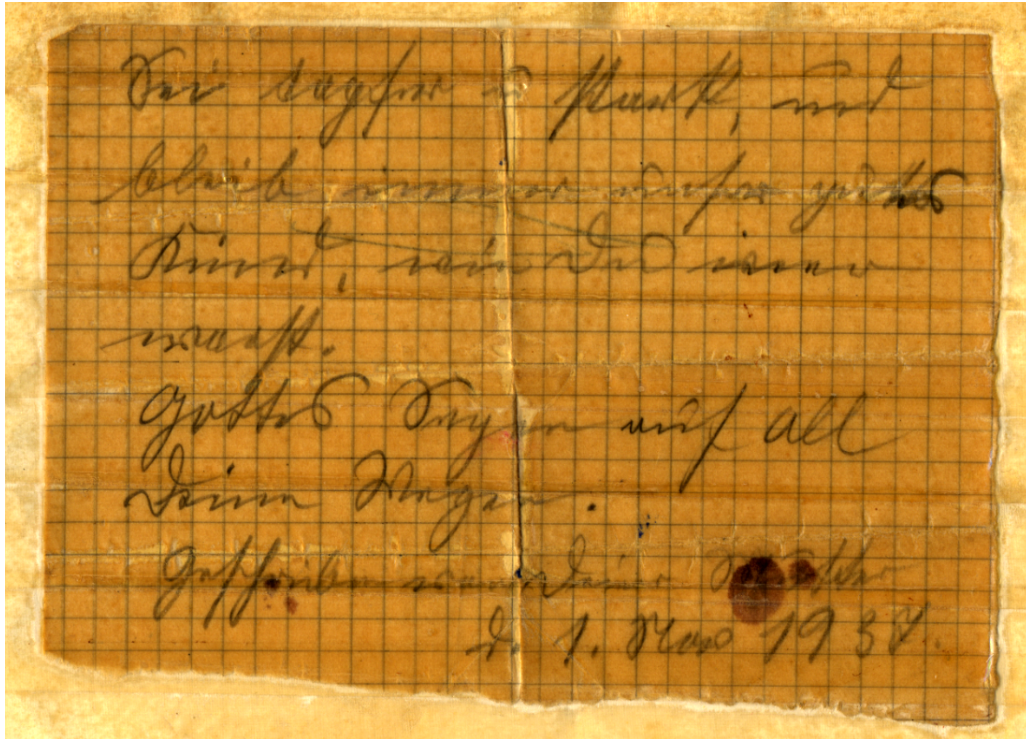 Sei tapfer u stark, und
bleib immer unser gutes
Kind, wie Du immer
warst.
Gottes Segen auf all
Deine Wegen.
Geschrieben von Deiner Mutter
d. 1. Nov 1937.